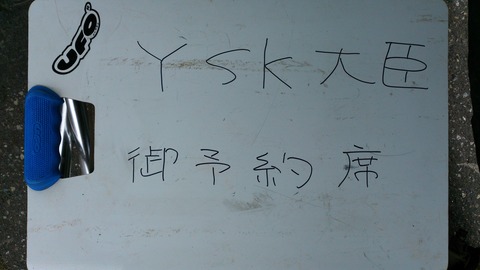 YSK大臣
御予約席